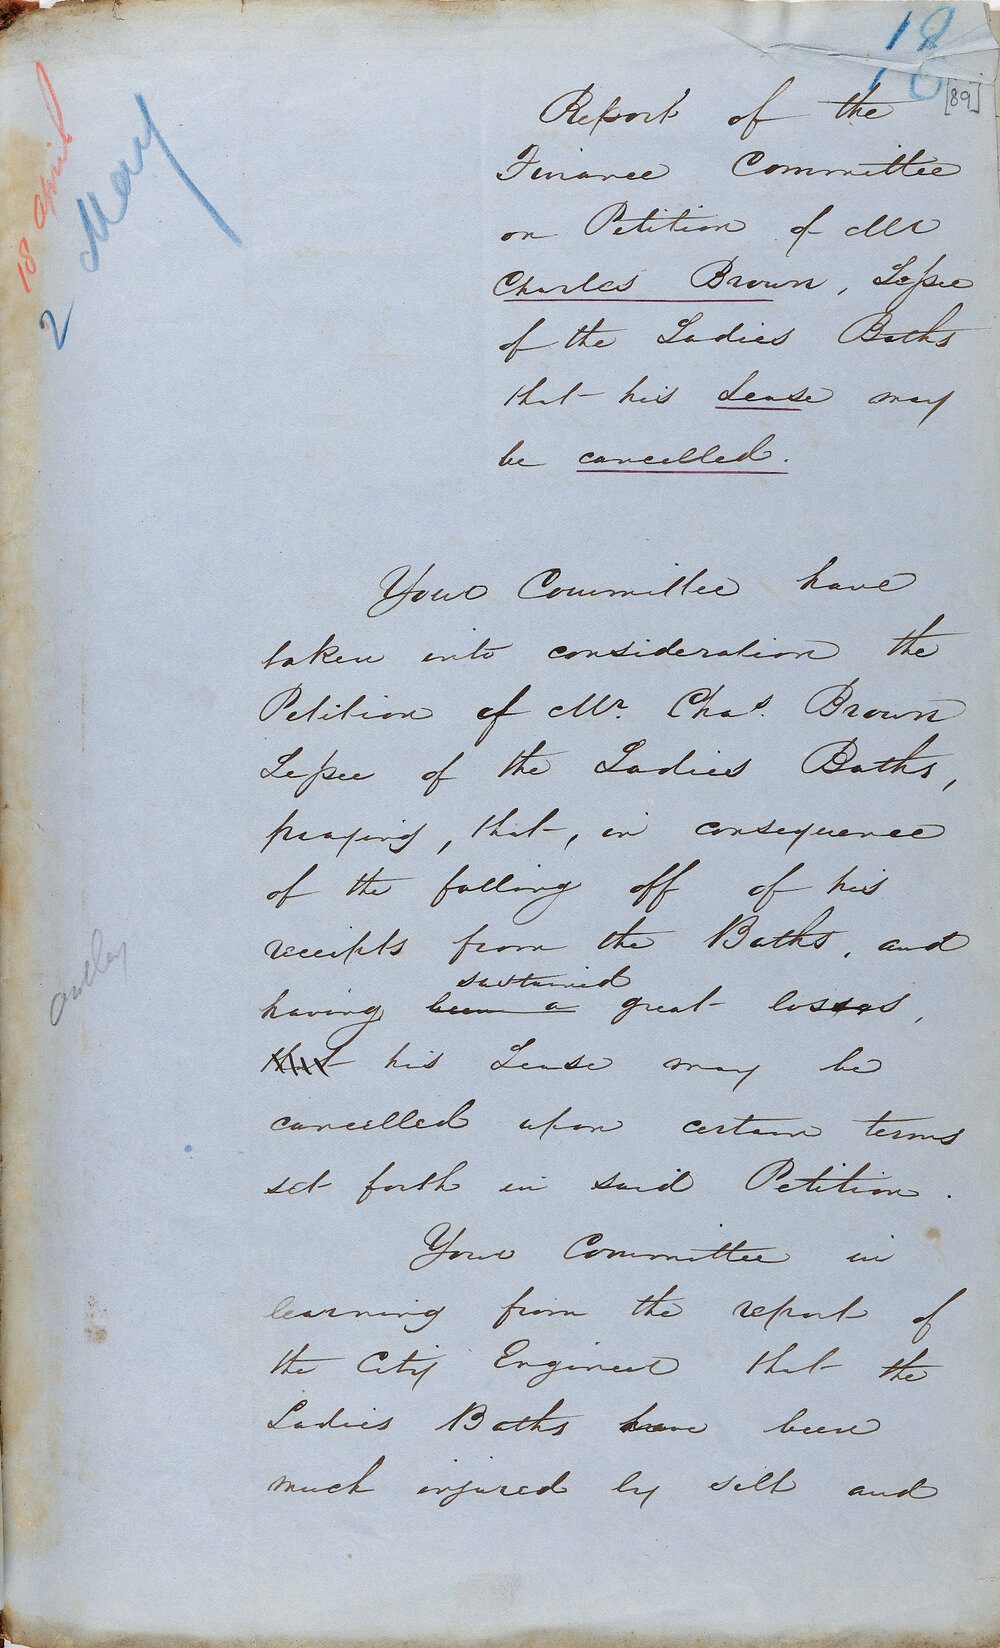 18
18
[89]
18 april
2 May
Report of the
Finance Committee
on Petition of Mr
Charles Brown, Lessee
of the Ladies Baths
that his Lease may
be cancelled.
Your Committee have
taken into consideration the
Petition of Mr. Chas. Brown
Lessee of the Ladies Baths,
praying, that, in consequence
of the falling off of his
receipts from the Baths, and
sustained
having been a great losses,
that his Lease may be
cancelled upon certain terms
set forth in said Petition.
Your Committee in
learning from the report of
the City Engineer that the
Ladies Baths have been
much injured by silt and